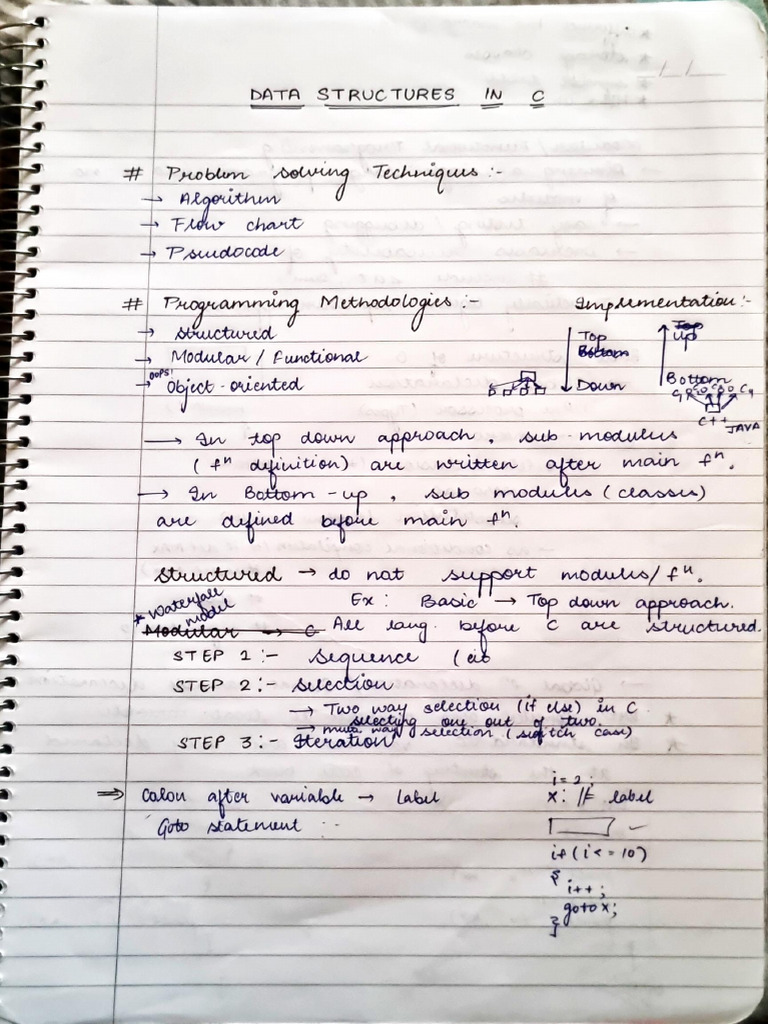 DATA STRUCTURES IN C
# Problem Solving Techniques :-
→ Algorithm
→ Flow chart
→ Pseudocode
# Programming Methodologies :-
→ structured
→ Modular / Functional
OOPS!
→ Object-oriented
Implementation :-
Top
Bottom
Down
Top
up
Bottom
C++
JAVA
→ In top down approach, sub-modules
( fⁿ definition) are written after main fⁿ.
→ In Bottom-up, sub modules (classes)
are defined before main fⁿ.
Structured → do not support modules/fⁿ.
* Waterfall model
Ex: Basic → Top down approach.
Modular → C All lang. before C are structured.
STEP 1 :- Sequence (
STEP 2 :- Selection
→ Two way selection (if else) in C.
selecting one out of two.
→ multi way selection (switch case)
STEP 3 :- Iteration
⇒ Colon after variable → Label
Goto statement :-
i = 2 ;
x: // label
if ( i < = 10)
{
i++ ;
goto x ;
}